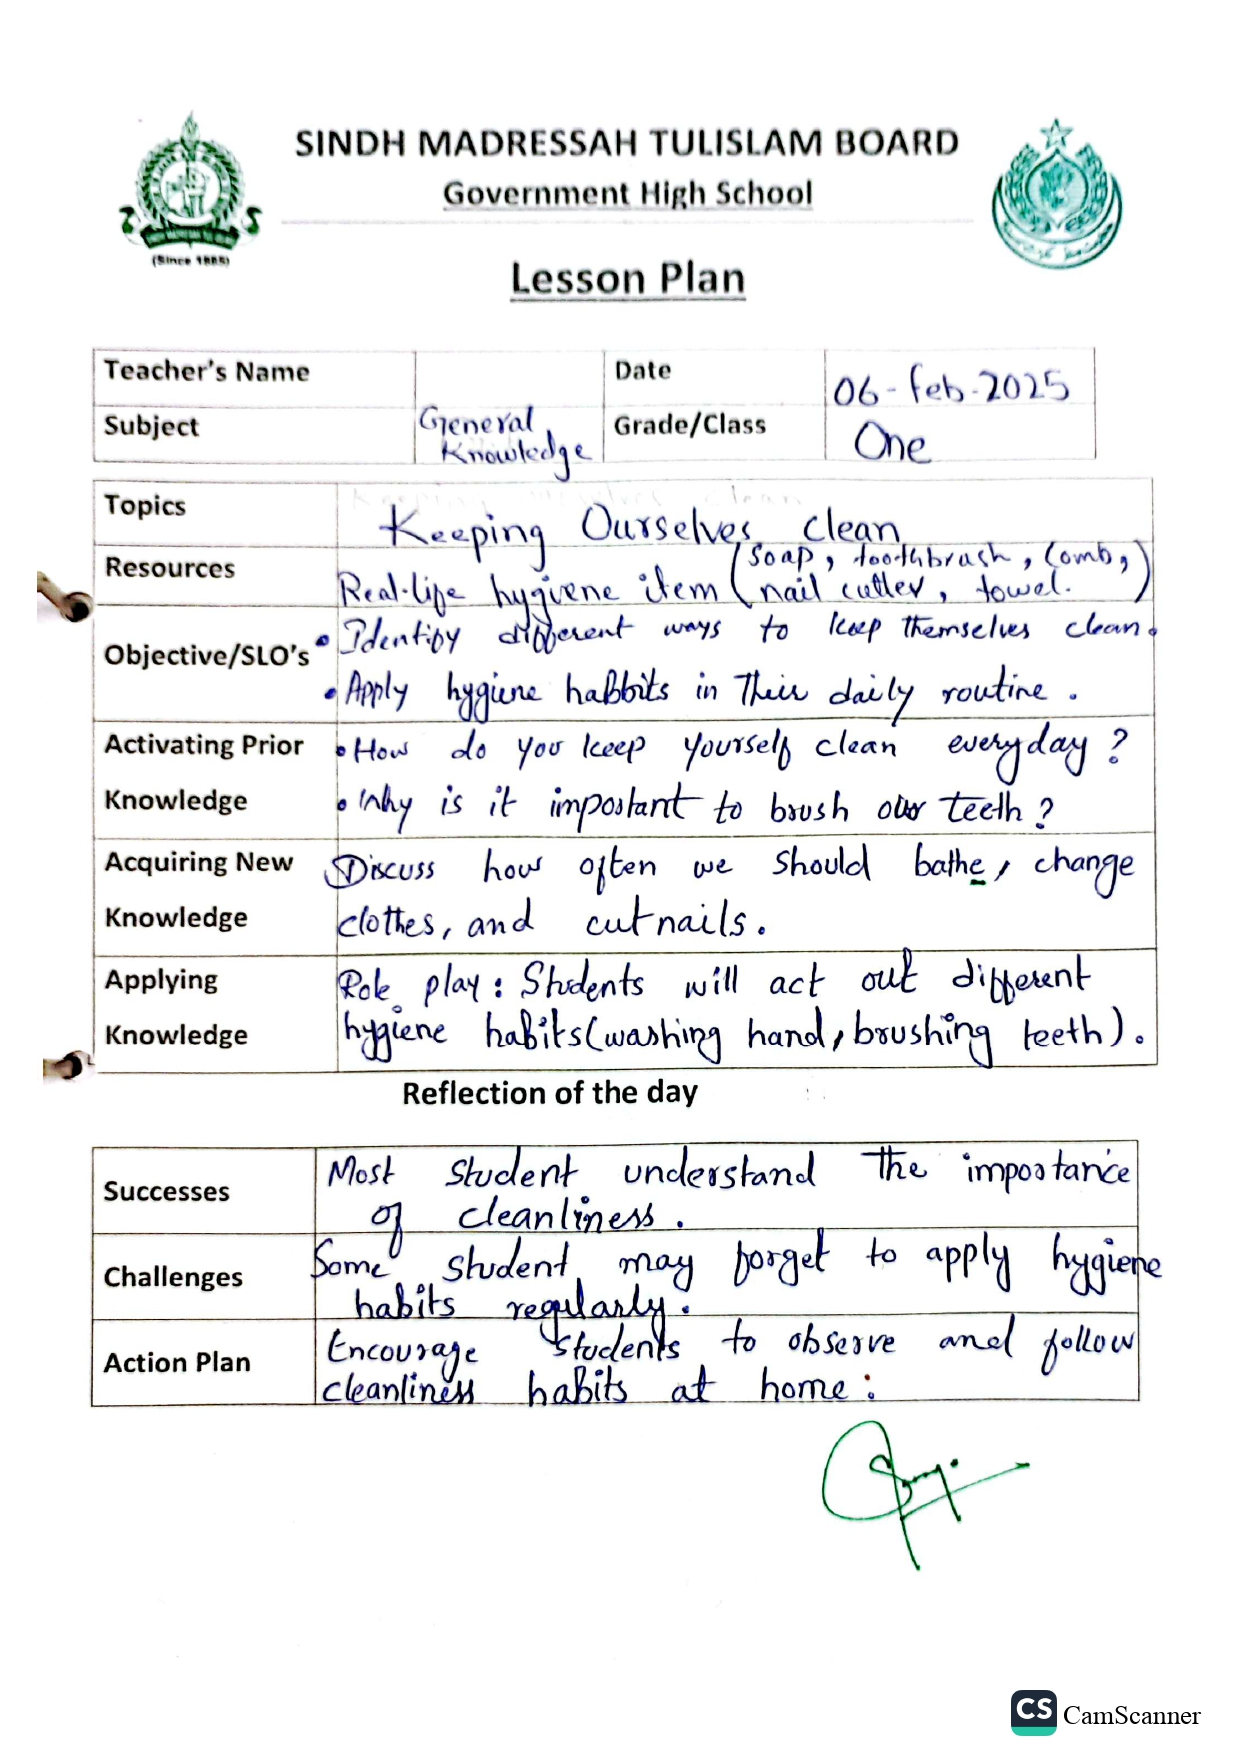 SINDH MADRESSAH TULISLAM BOARD
Government High School
(Since 1885)
Lesson Plan
Teacher's Name
Date
06-Feb-2025
Subject
General
Knowledge
Grade/Class
One
Topics
Keeping Ourselves clean
Resources
Real-life hygiene item (soap, toothbrush, Comb,
nail cutter, towel.)
Objective/SLO's
• Identify different ways to keep themselves clean.
• Apply hygiene habbits in Their daily routine.
Activating Prior
Knowledge
• How do you keep yourself clean everyday?
• Why is it important to brush our teeth?
Acquiring New
Knowledge
Discuss how often we should bathe, change
clothes, and cut nails.
Applying
Knowledge
Role play: Students will act out different
hygiene habits (washing hand, brushing teeth).
Reflection of the day
Successes
Most student understand the importance
of cleanliness.
Challenges
Some student may forget to apply hygiene
habits regularly.
Action Plan
Encourage students to observe and follow
cleanliness habits at home.
CS CamScanner